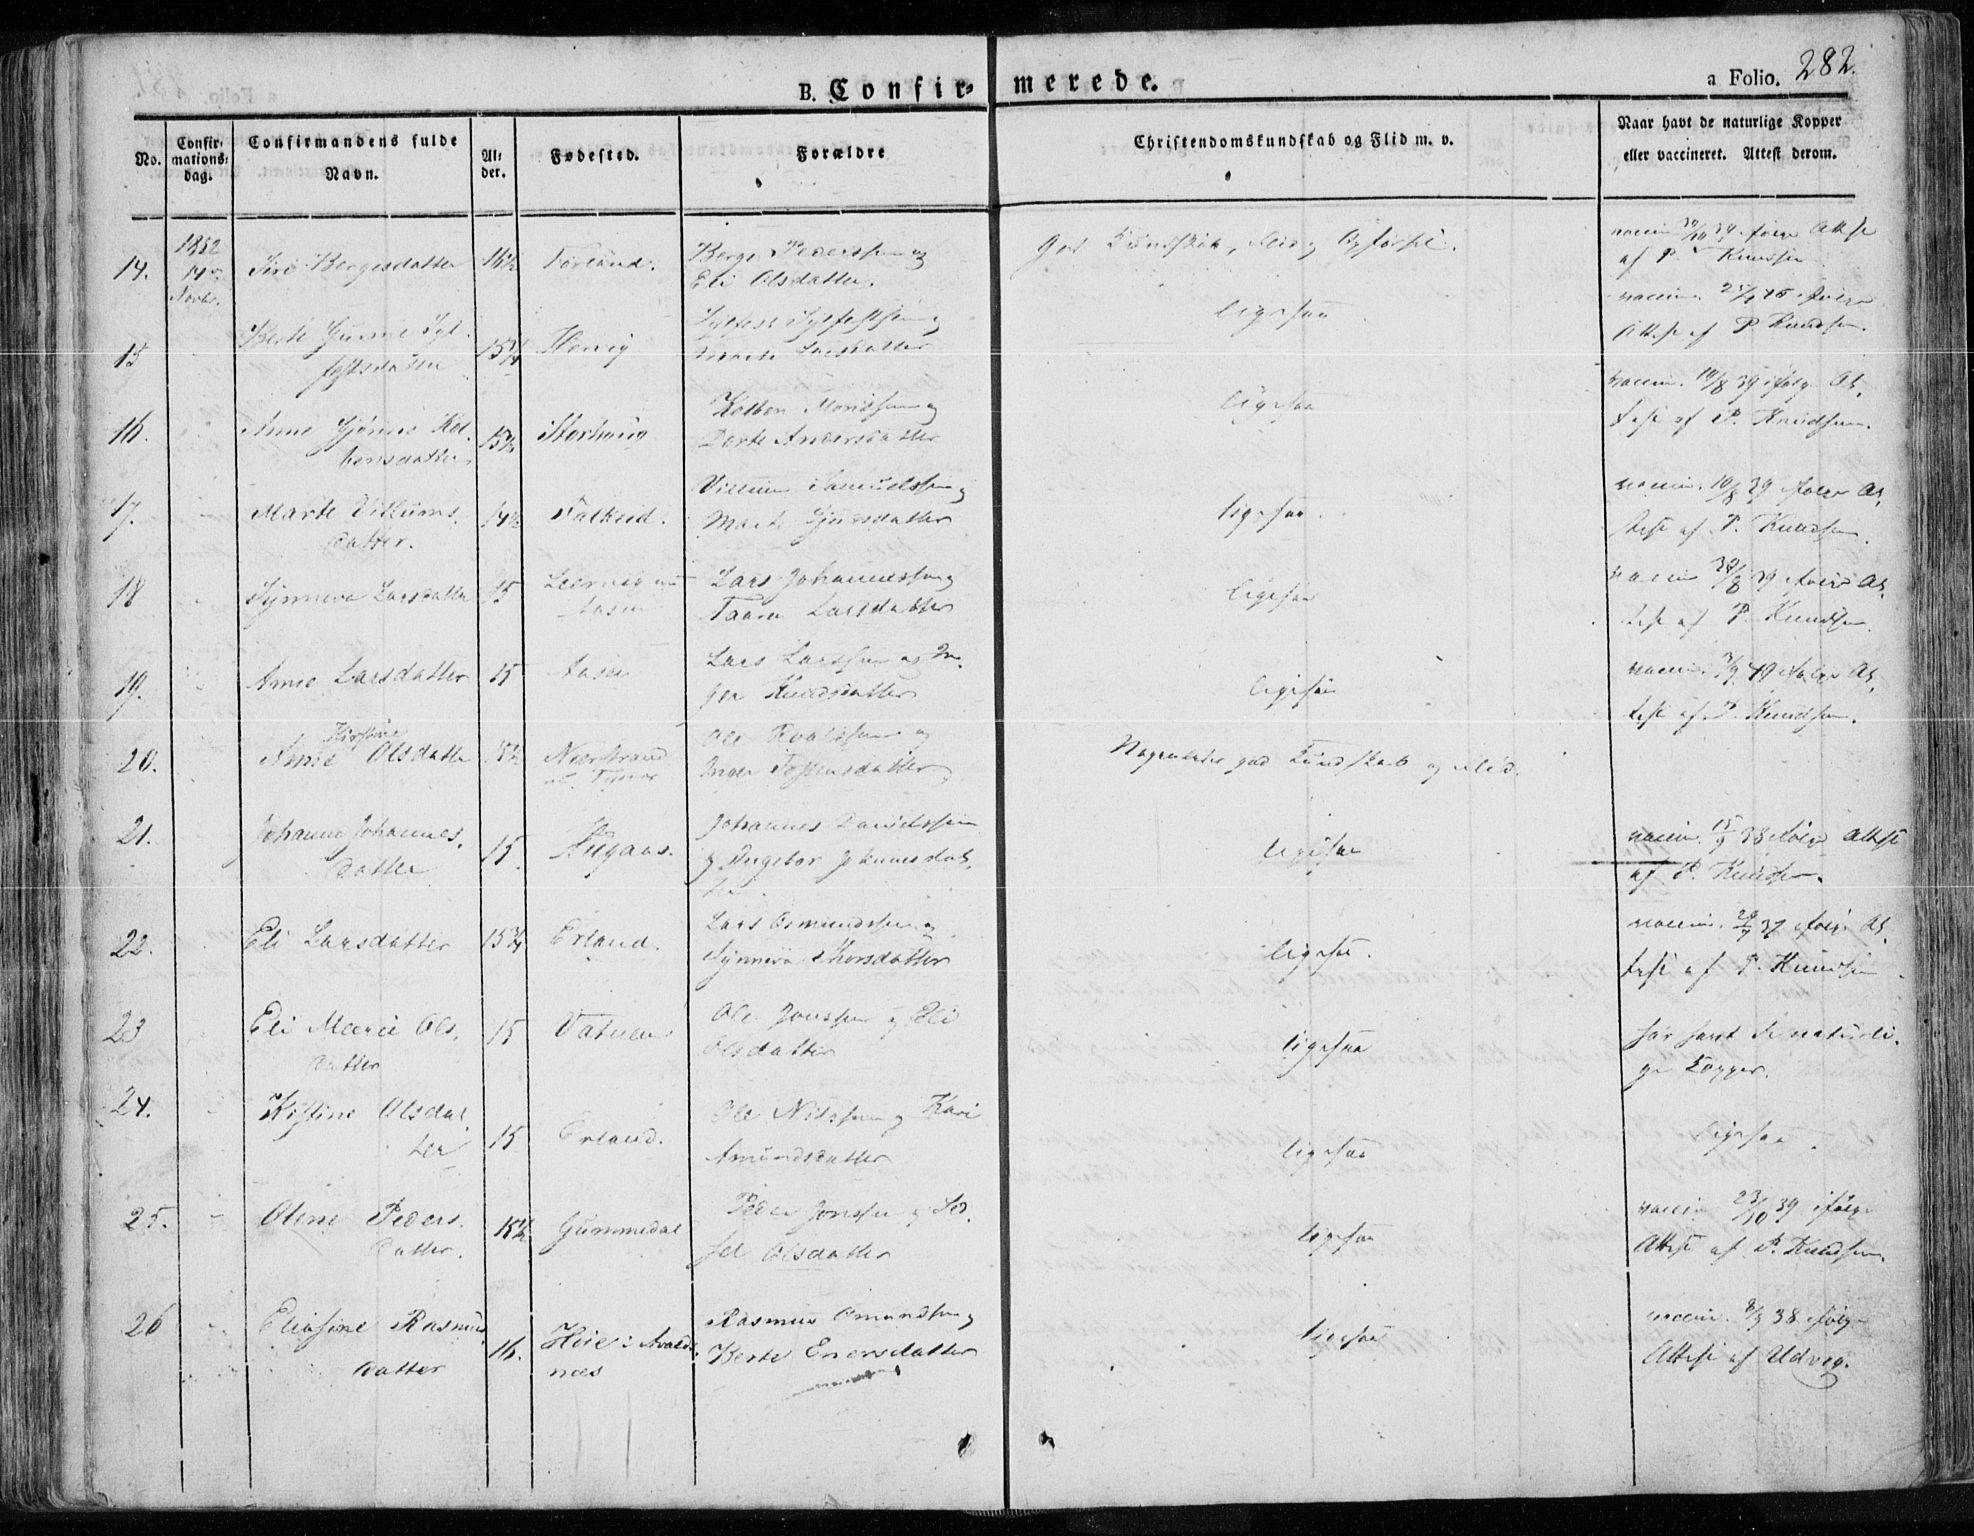 B. Confir-
merede.
a Folio. 282.
No.
Confir-
mations-
dag.
Confirmandens fulde
Navn.
Al-
der.
Fødested.
Forældre
Christendomskundskab og Flid m. v.
Naar havt de naturlige Kopper
eller vaccineret. Attest derom.
14. 1852
14de
Novbr.
Siri Bergesdatter 16½ Førland. Berge Pederssen og
Eli Olsdatter.
God Kundskab, Flid og Opførsel.
vaccin 39 ifølge Attest
af P. Knudsen
15 Berte Gurine Syl-
festsdatter 15¾ Sylfest Sylfestsen og
Marte Larsdatter
ligesaa
vaccin. ifølge
Attest af P. Knudsen.
16. Anne Kol-
bensdatter 15¾ Storhaug Kolben Monssen og
Dorte Andersdatter
ligesaa
vaccin. 19/8 39 ifølge At-
test af P. Knudsen.
17. Marte Villums-
datter. 14½ Falkeid. Villum Samuelssen og
Marte Sjursdatter
ligesaa.
vaccin. 19/8 39 ifølge At-
test af P. Knudsen.
18 Synneva Larsdatter 15 Leervig
Aasen Lars Johannessen og
Taaren Larsdatter
ligesaa
vaccin 39 ifølge At-
test af P. Knudsen.
19. Anne Larsdatter 15 Aasen Lars Larssen og In-
ger Knudsdatter
ligesaa
vaccin. ifølge At-
test af P. Knudsen.
20. Anne Kirstine Olsdatter 15½ Nærstrand
Ole og
Inger Tostensdatter
Nogenledes god Kundskab og Flid.
21. Johanne Johannes-
datter 15. Johannes Danielssen
og Ingebor Johannesdat-
ter.
ligesaa
vaccin. 15/9 38 ifølge Attest
af P. Knudsen.
22. Eli Larsdatter 15¾ Erland. Lars Osmundssen og
Synneva Thorsdatter
ligesaa.
vaccin. 37 ifølge At-
test af P. Knudsen
23 Eli Marie Ols-
datter 15 Vatnen Ole Jonssen og Eli
Olsdatter
ligesaa
har havt de naturli-
ge Kopper.
24. Kistine Olsdat-
ter 15 Erland. Ole Nilssen og Kari
Amundsdatter
ligesaa
ligesaa
25. Oline Peders-
datter. 15½ Gummedal Peder Jonssen og Ses-
sel Olsdatter
ligesaa
vaccin 23/10 39 ifølge
Attest af P. Knudsen.
26 Eliasine Rasmus-
datter 16. Høie i Avalds-
næs Rasmus Omundsen og
Berte Enersdatter
ligesaa
vaccin. 8/9 38 ifølge
Attest af Udveg.